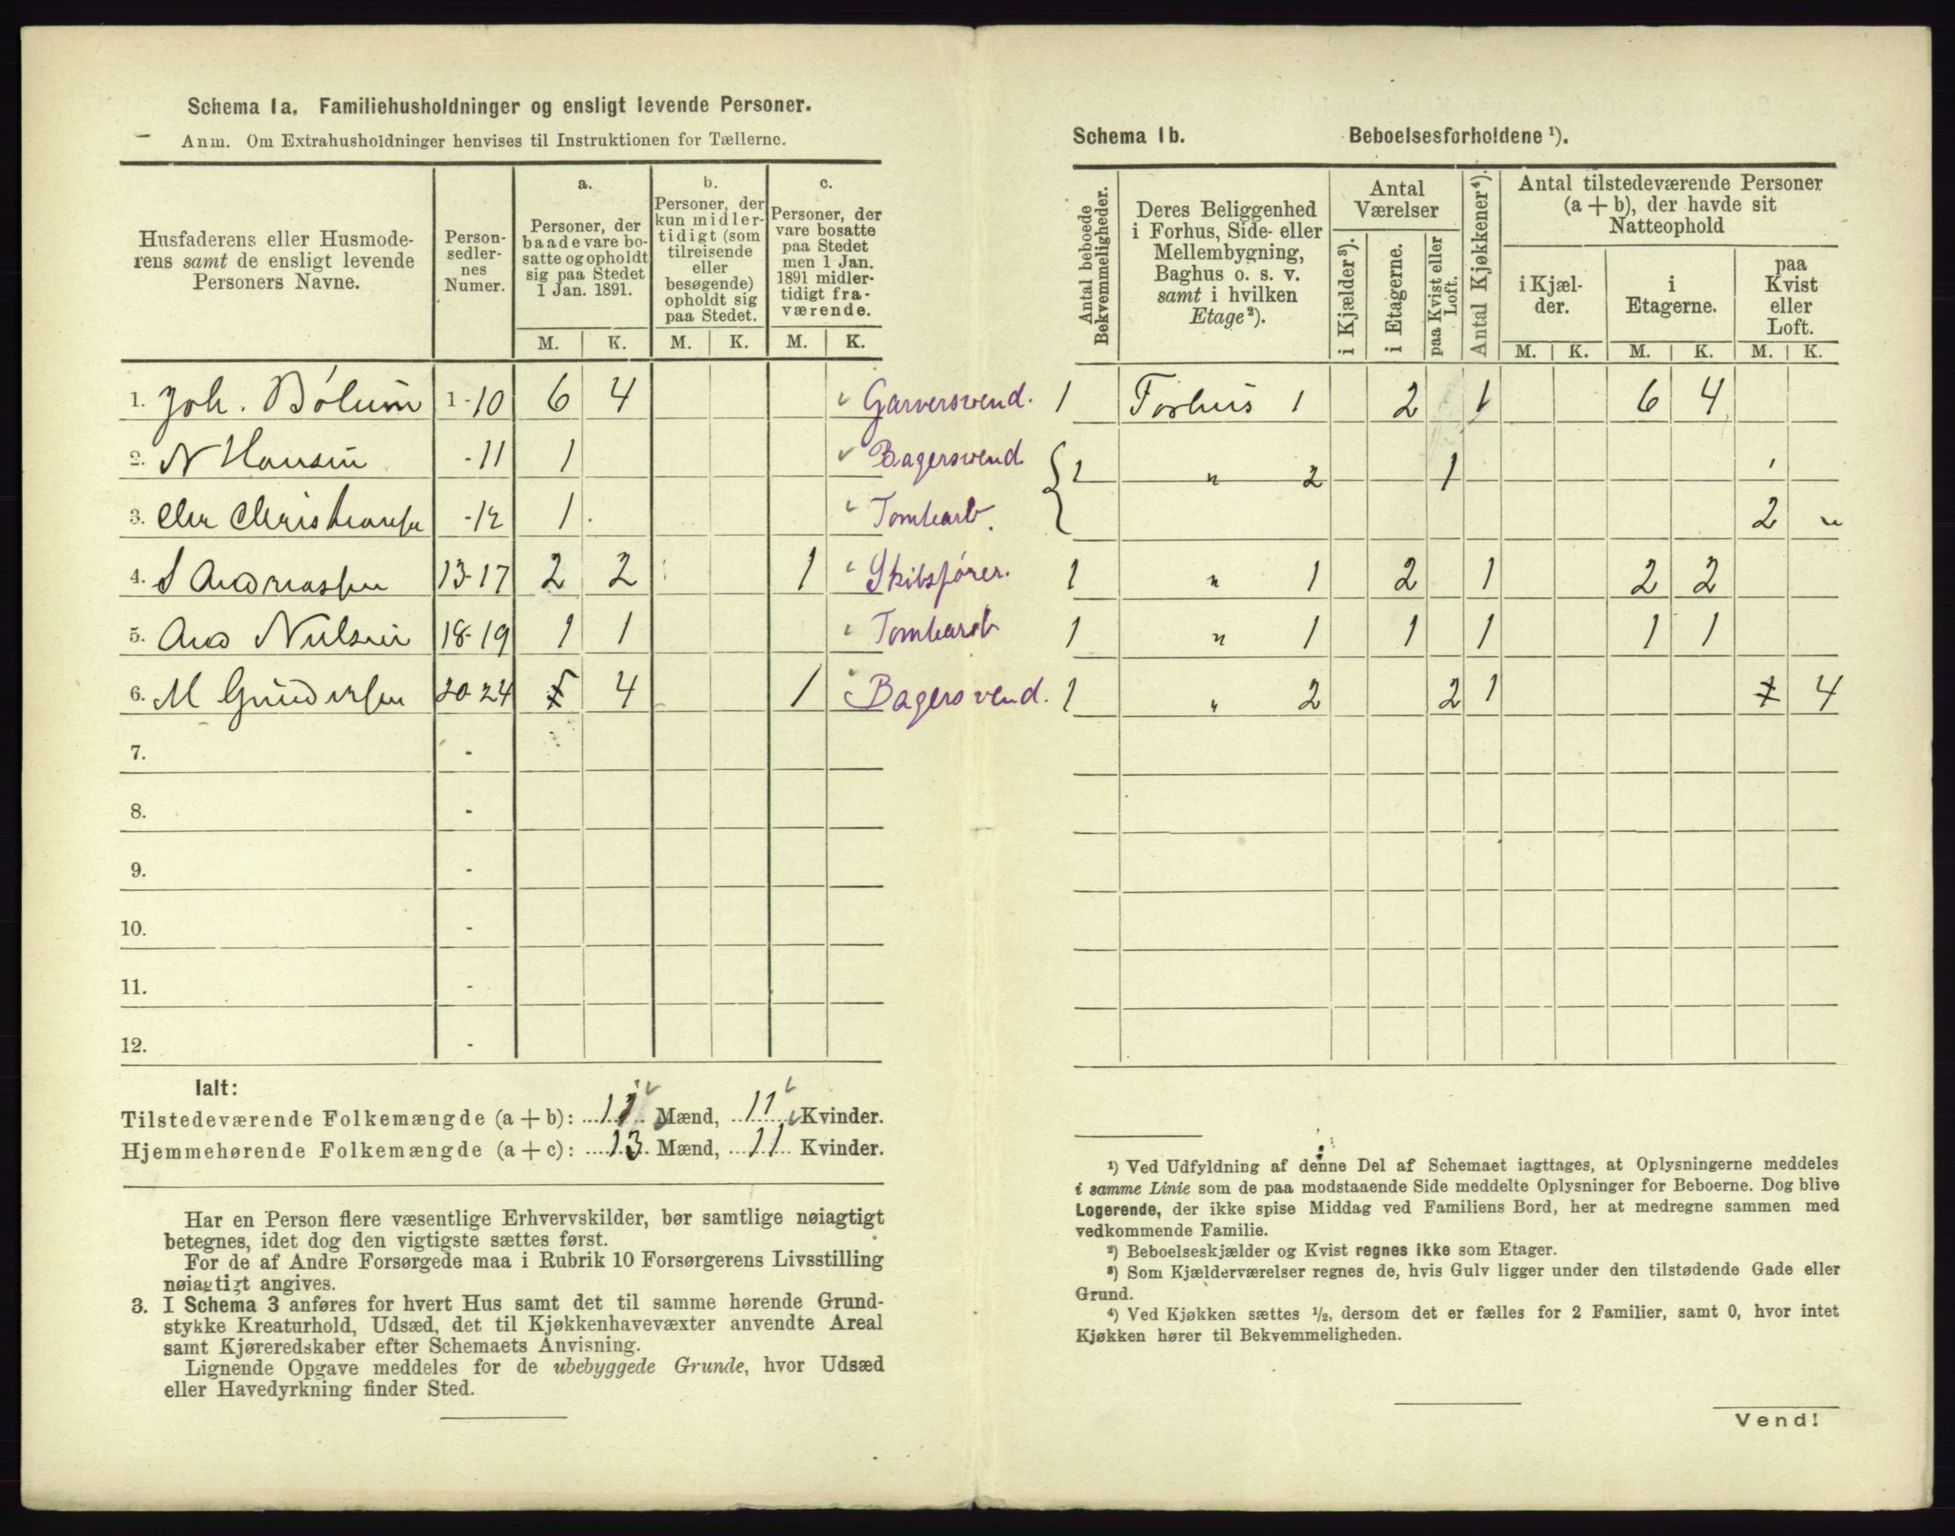 Schema 1a. Familiehusholdninger og ensligt levende Personer.
Anm. Om Extrahusholdninger henvises til Instruktionen for Tællerne.
Husfaderens eller Husmoderens samt de ensligt levende Personers Navne.
Personsedlernes Numer.
a.
Personer, der baade vare bosatte og opholdt sig paa Stedet 1 Jan. 1891.
b.
Personer, der kun midlertidigt (som tilreisende eller besøgende) opholdt sig paa Stedet.
c.
Personer, der vare bosatte paa Stedet men 1 Jan. 1891 midlertidigt fraværende.
M. K. M. K. M. K.
1. Joh. Bólum 1-10 6 4 Garversvend.
2. N Hansen -11 1 Bagersvend.
3. Chr Christiansen -12 1 Tomtearb.
4. S Andreassen 13-17 2 2 1 Skibsfører.
5. And Nielsen 18-19 1 1 Tomtearb
6. M Gundersen 20-24 4 1 Bagersvend.
7. -
8. -
9. -
10. -
11. -
12. -
Ialt:
Tilstedeværende Folkemængde (a + b): 11 Mænd, 11 Kvinder.
Hjemmehørende Folkemængde (a + c): 13 Mænd, 11 Kvinder.
Har en Person flere væsentlige Erhvervskilder, bør samtlige nøiagtigt
betegnes, idet dog den vigtigste sættes først.
For de af Andre Forsørgede maa i Rubrik 10 Forsørgerens Livsstilling
nøiagtigt angives.
3. I Schema 3 anføres for hvert Hus samt det til samme hørende Grund-
stykke Kreaturhold, Udsæd, det til Kjøkkenhavevæxter anvendte Areal
samt Kjøreredskaber efter Schemaets Anvisning.
Lignende Opgave meddeles for de ubebyggede Grunde, hvor Udsæd
eller Havedyrkning finder Sted.
Schema 1b. Beboelsesforholdene ¹).
Antal beboede Bekvemmeligheder.
Deres Beliggenhed i Forhus, Side- eller Mellembygning, Baghus o. s. v. samt i hvilken Etage²).
Antal Værelser
i Kjælder³).
i Etagerne.
paa Kvist eller Loft.
Antal Kjøkkener⁴).
Antal tilstedeværende Personer (a + b), der havde sit Natteophold
i Kjælder.
i Etagerne.
paa Kvist eller Loft.
M. K. M. K. M. K.
1 Forhus 1 2 1 6 4
1 " 2 1
2 "
1 " 1 2 1 2 2
1 " 1 1 1 1 1
1 " 2 2 1 4
¹) Ved Udfyldning af denne Del af Schemaet iagttages, at Oplysningerne meddeles
i samme Linie som de paa modstaaende Side meddelte Oplysninger for Beboerne. Dog blive
Logerende, der ikke spise Middag ved Familiens Bord, her at medregne sammen med
vedkommende Familie.
²) Beboelseskjælder og Kvist regnes ikke som Etager.
³) Som Kjælderværelser regnes de, hvis Gulv ligger under den tilstødende Gade eller
Grund.
⁴) Ved Kjøkken sættes ½, dersom det er fælles for 2 Familier, samt 0, hvor intet
Kjøkken hører til Bekvemmeligheden.
Vend!